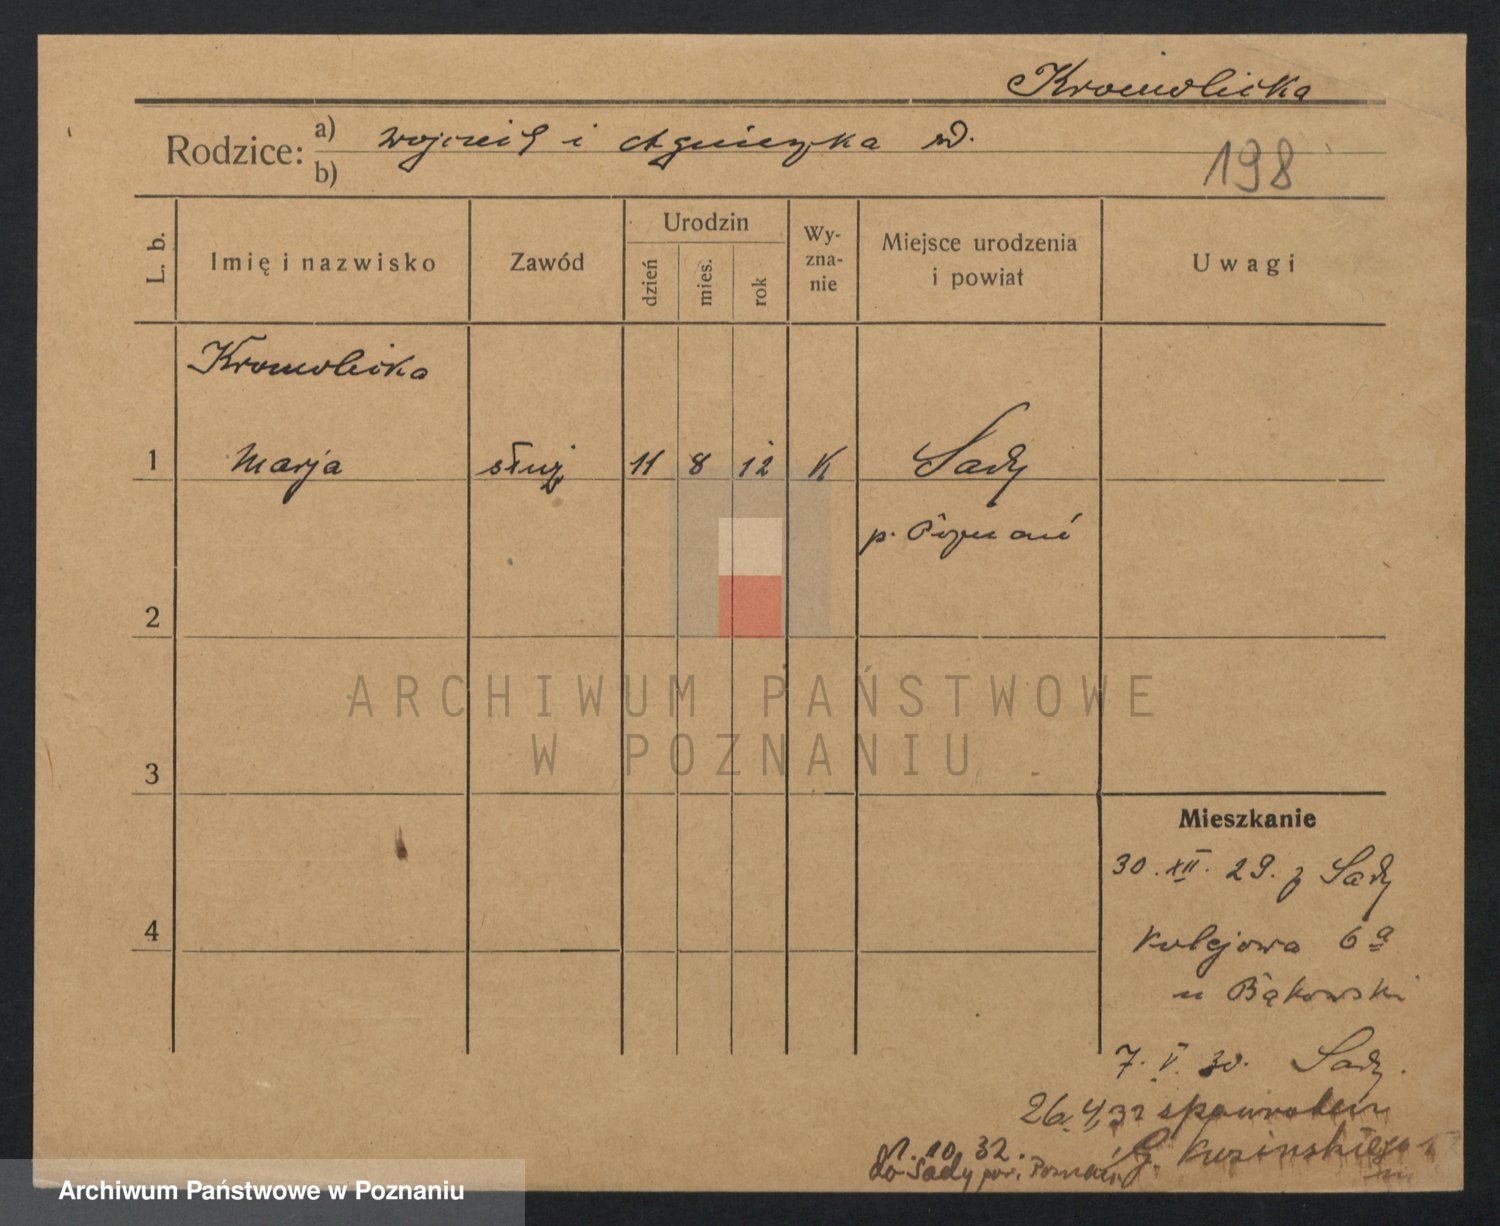 Kromolicka
Rodzice: a) Wojciech i Agnieszka
b)
198
L. b.
Imię i nazwisko
Zawód
Urodzin
dzień
mies.
rok
Wy-
zna-
nie
Miejsce urodzenia
i powiat
Uwagi
Kromolicka
1 Marja służ 11 8 12 K Sady
p. Poznań
2
3
4
ARCHIWUM PAŃSTWOWE
W POZNANIU
Mieszkanie
30. XII. 29. z Sady
Kolejowa 6a
u Bąkowski
7. V. 30. Sady.
26. 4. 32 spowrotem
G. Kusinskiego
1. 10. 32.
do Sady pow. Poznań
Archiwum Państwowe w Poznaniu